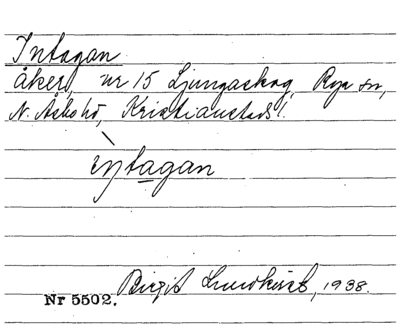 Intagan
åker, nr 15 Ljungaskog, Röja sn,
N. Åsbo hd, Kristianstads l.
ìntagan
Birgit Lundkvist, 1938.
Nr 5502.